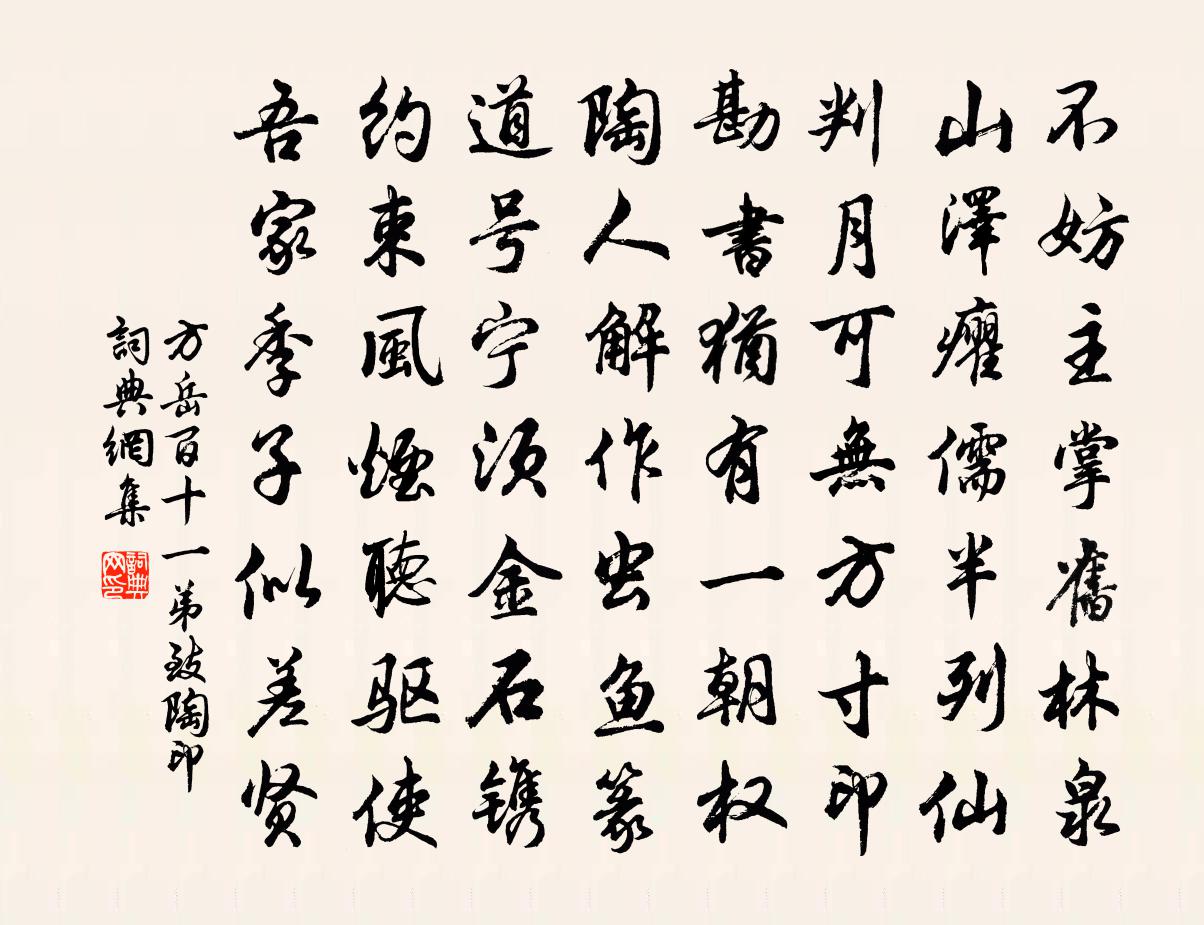 不妨主掌舊林泉
山澤癯儒半列仙
判月可無方寸印
勘書猶有一朝权
陶人解作虫鱼篆
道号宁须金石镌
約束風煙聽驱使
吾家季子似差贤
方岳百十一弟致陶印
詞典網集
詞典
网印